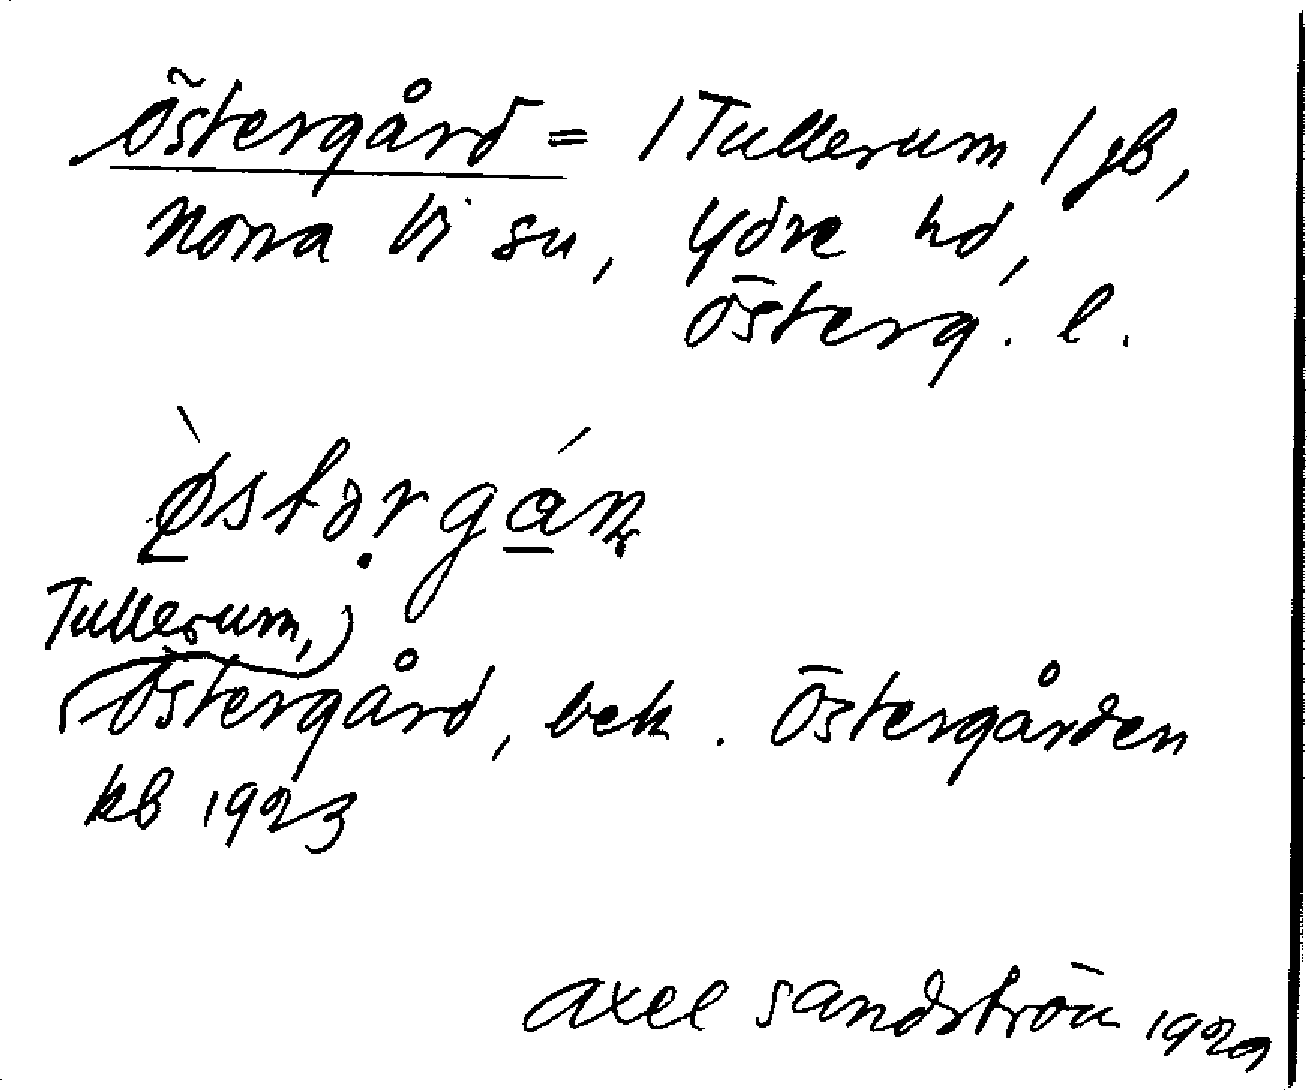 Östergård = / Tullerum / gb,
Norra Vi sn, Ydre hd,
Österg. l.
ø̀stərgán
Tullerum,
Östergård, bek. Östergården
kb 1923
Axel Sandström 1929